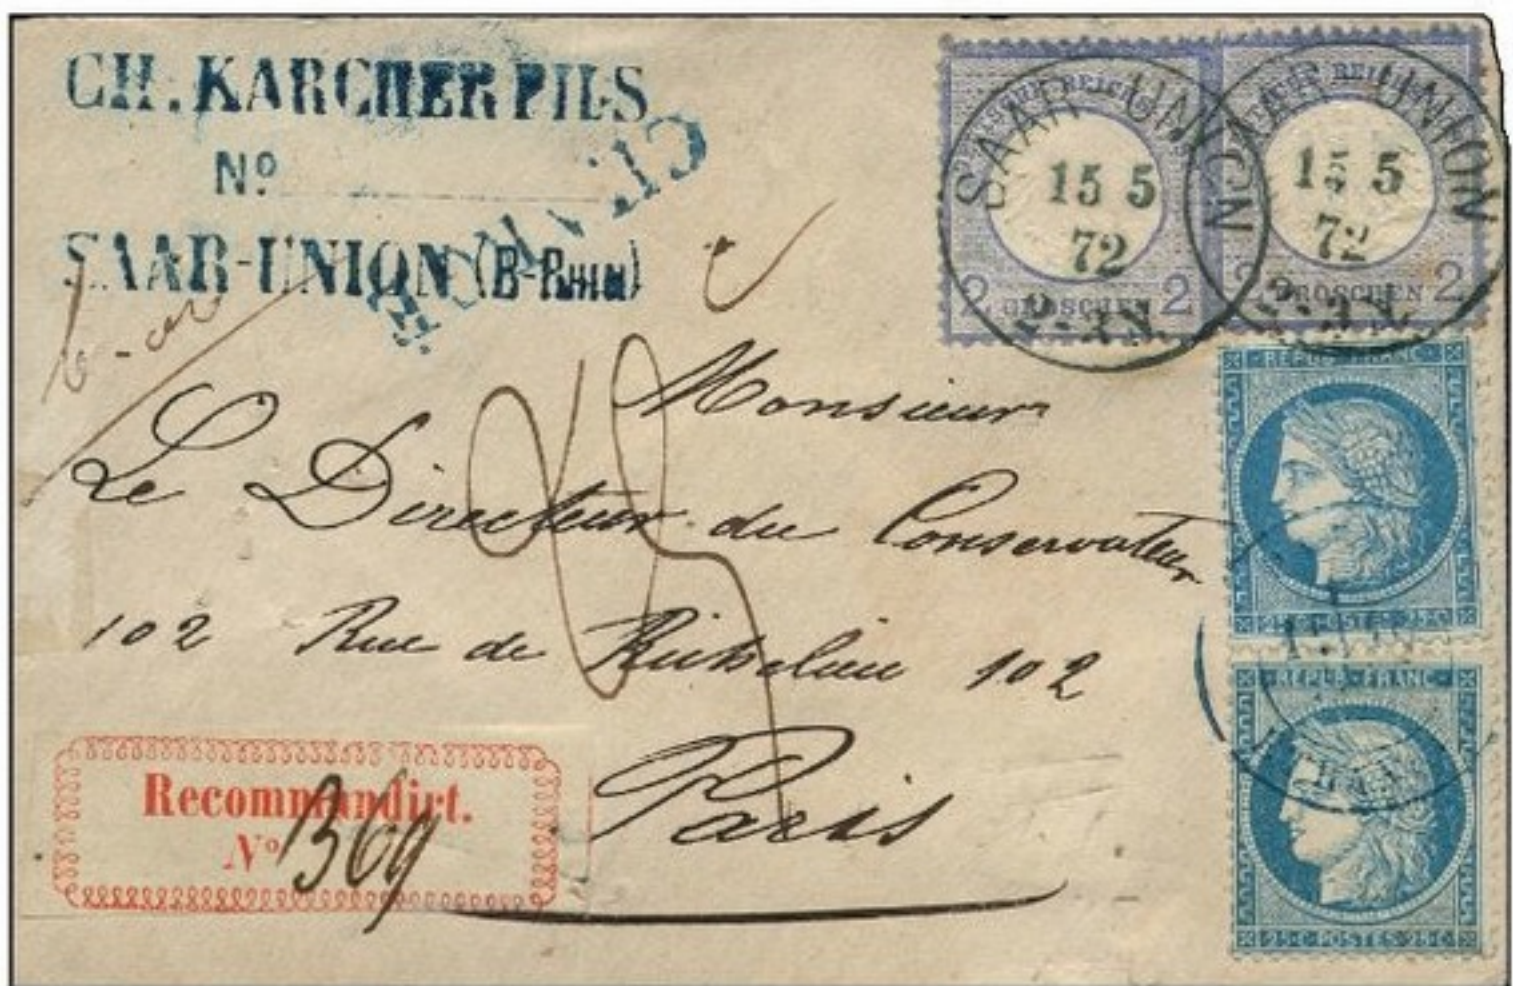 CH. KARCHER FILS
Nº
SAAR-UNION (B-Rhin)
CHARGÉ
DEUTSCHE REICHS-POST
2 GROSCHEN 2
SAAR-UNION
15 5
72
2-3N.
REICHS
2 GROSCHEN 2
SAAR-UNION
15 5
72
2-3N.
Monsieur
Le Directeur du Conservateur
102 Rue de Richelieu 102
Paris
REPUB·FRANC·
25·C·POSTES·25·C·
REPUB·FRANC·
25·C·POSTES·25·C·
Recommandirt.
Nº 369